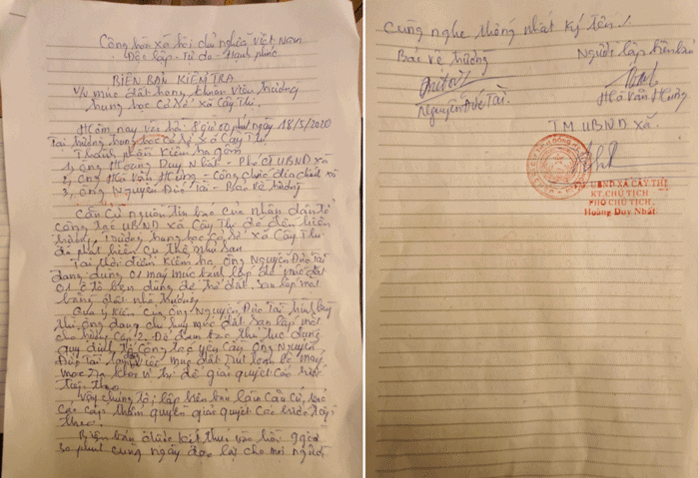 Cộng hòa xã hội chủ nghĩa Việt Nam
Độc lập - Tự do - Hạnh phúc
BIÊN BẢN KIỂM TRA
V/v múc đất trong khuôn viên trường
trung học Cơ Sở xã Cây Thị.
Hôm nay vào hồi 8 giờ 00 phút ngày 18/5/2020
Tại trường trung học Cơ sở xã Cây Thị
Thành phần kiểm tra gồm
1, ông Hoàng Duy Nhất - Phó CT UBND xã
2, ông Hà Văn Hưng - Công chức địa chính xã
3, ông Nguyễn Đức Tài - Bảo vệ trường
Căn cứ nguồn tin báo của nhân dân tổ
công tác UBND xã Cây Thị đã đến hiện
trường Trường trung học Cơ Sở xã Cây Thị
đã phát hiện cụ thể như sau
Tại thời điểm kiểm tra, ông Nguyễn Đức Tài
đang dùng 01 máy múc để múc đất
01 ô tô ben dùng để chở đất san lấp mặt
bằng đất nhà trường
Qua ý kiến của ông Nguyễn Đức Tài trình bày
thì ông đang cho máy múc đất san lấp mặt
cho trường Cấp 2. Để đảm bảo thủ tục đúng
quy định tổ Công tác yêu cầu ông Nguyễn
Đức Tài việc múc đất rút toàn bộ máy
móc ra khỏi vị trí để giải quyết các bước
tiếp theo.
Vậy chúng tôi lập biên bản làm căn cứ, báo
các cấp thẩm quyền giải quyết các bước tiếp
theo.
Biên bản được kết thúc vào hồi 9 giờ
30 phút cùng ngày đọc lại cho mọi người
Cùng nghe thống nhất ký tên /
Bảo vệ trường
Người lập biên bản
Nguyễn Đức Tài.
Hà Văn Hưng
TM UBND xã.
TM UBND XÃ CÂY THỊ
KT. CHỦ TỊCH
PHÓ CHỦ TỊCH
Hoàng Duy Nhất